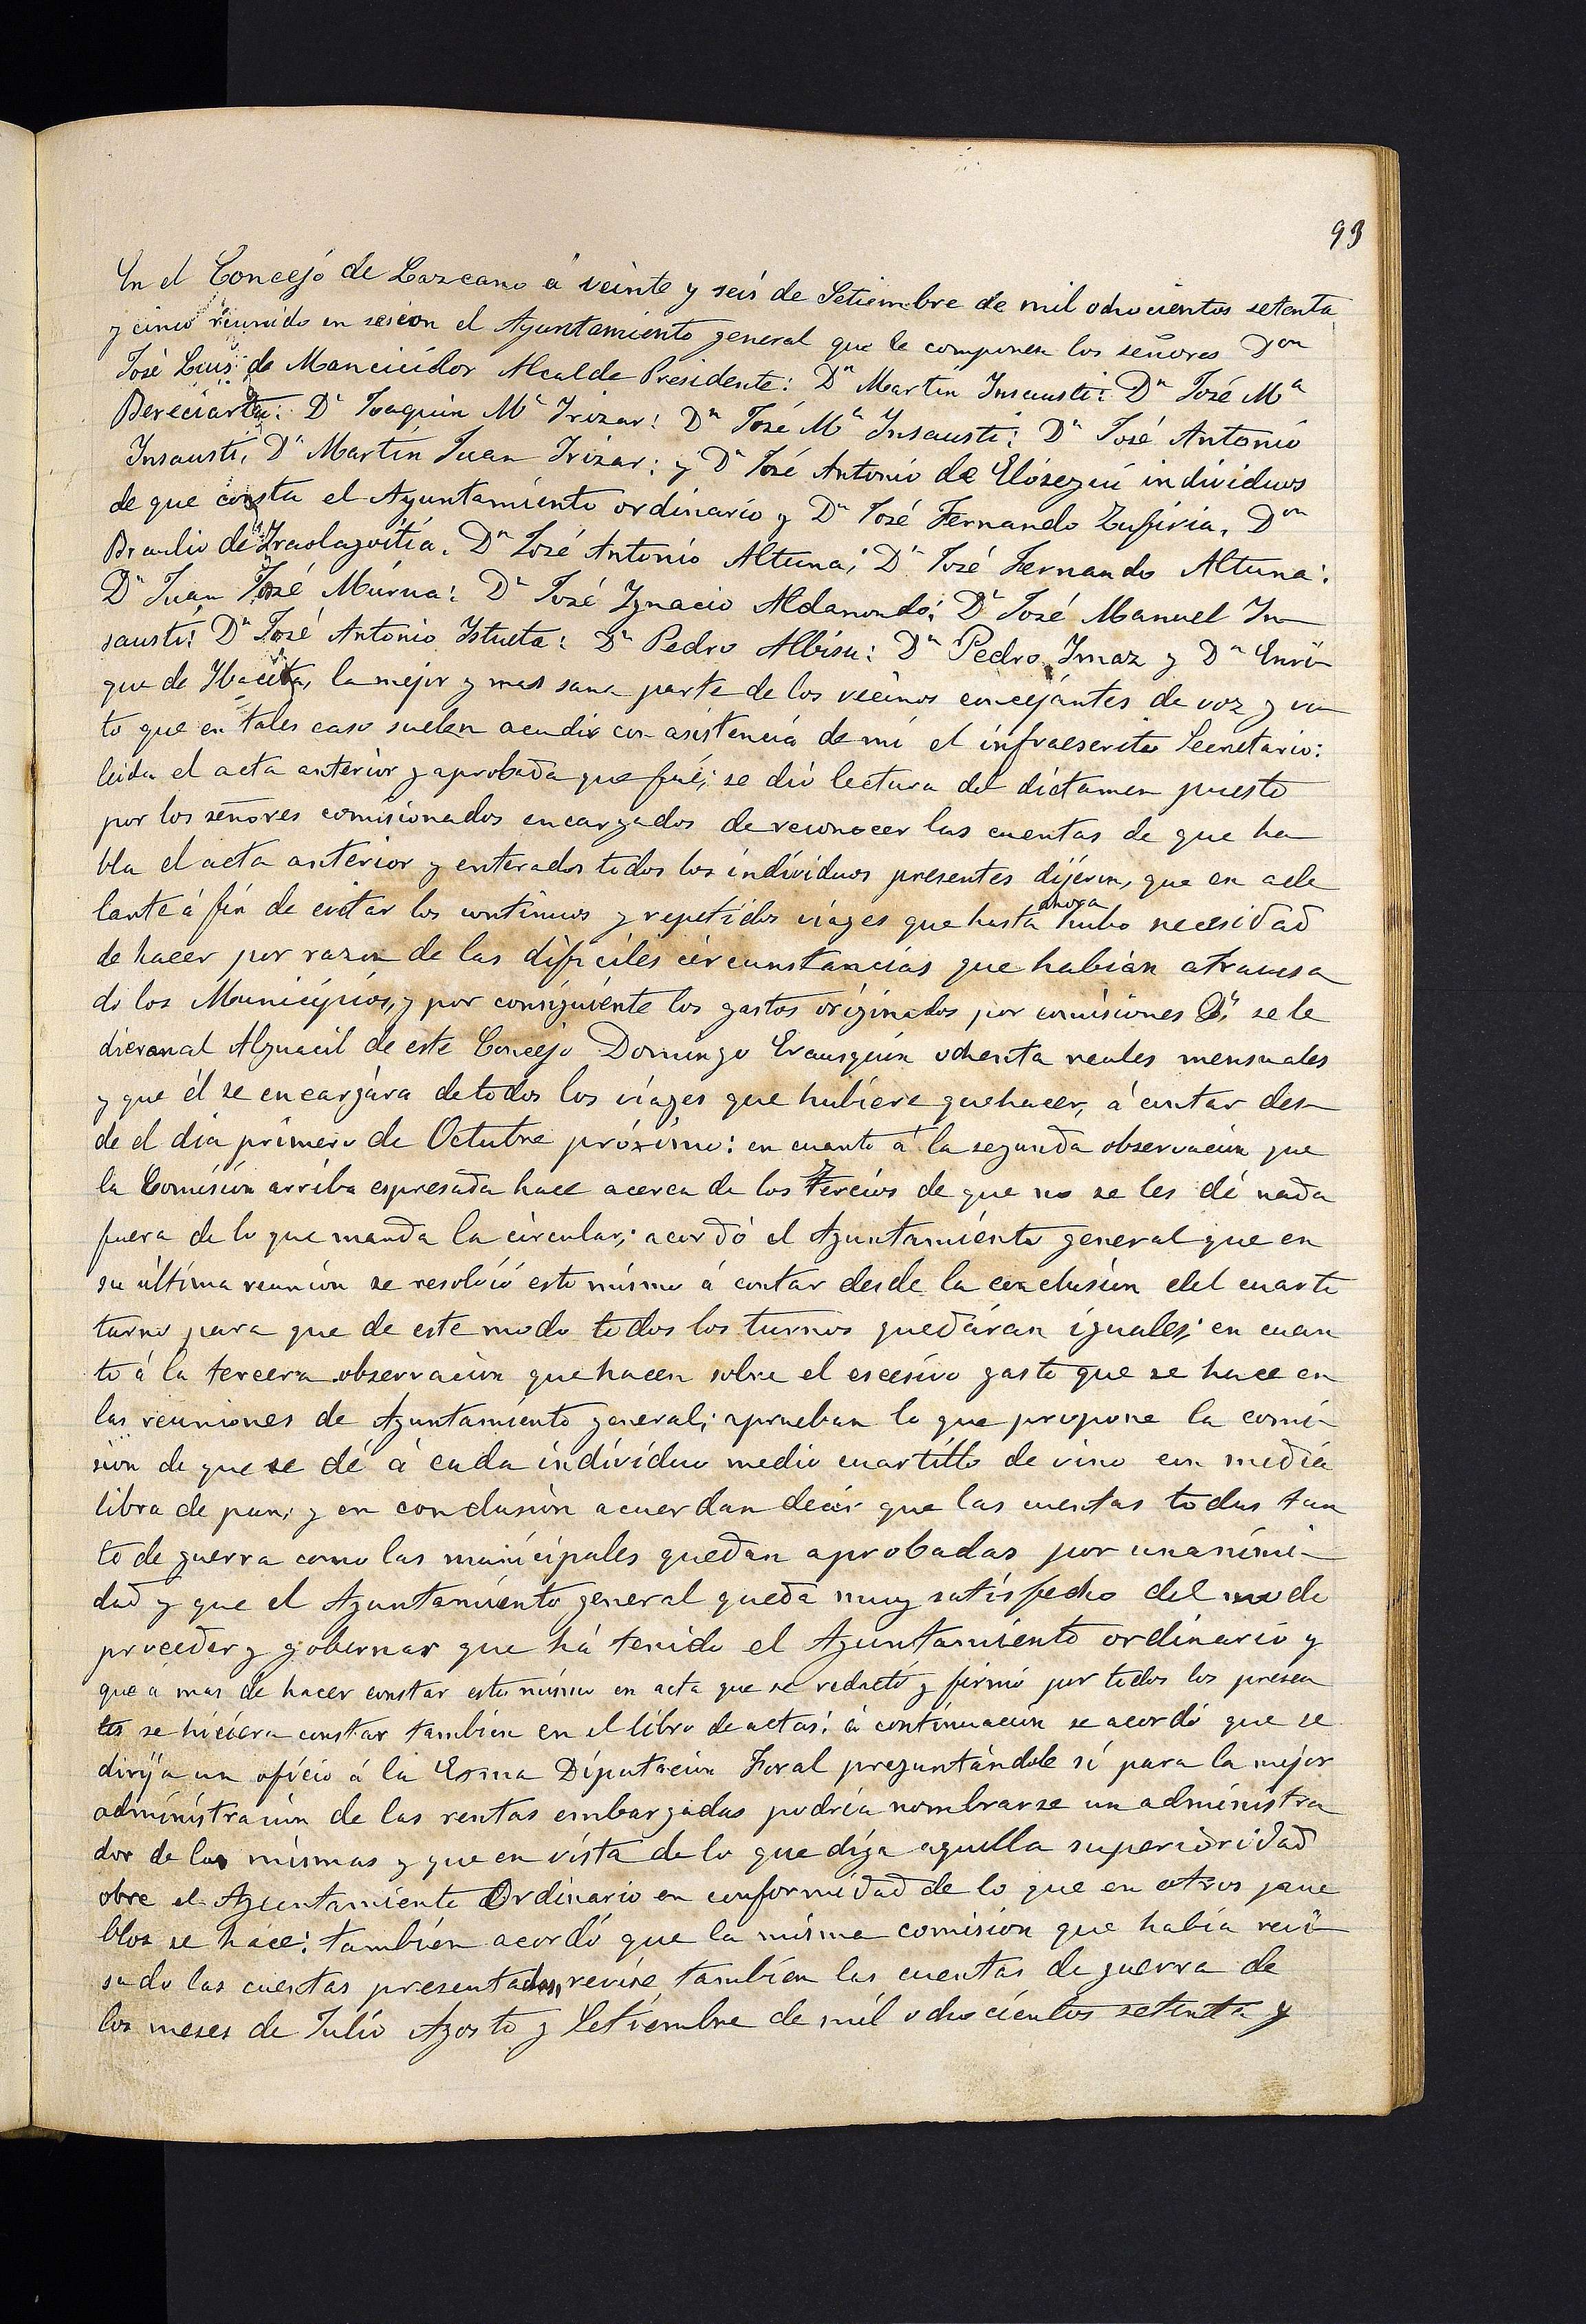 93
En el Concejo de Lazcano á veinte y seis de Setiembre de mil ochocientos setenta
y cinco reunido en sesion el Ayuntamiento general que le componen los señores Don
José Luis de Mancicidor Alcalde Presidente: Dn Martin Insausti: Dn José Ma
Bereciartu: Dn Joaquin Ma Irizar: Dn José Ma Insausti: Dn José Antonio
Insausti, Dn Martin Juan Irizar: y Dn José Antonio de Elósegui individuos
de que consta el Ayuntamiento ordinario y Dn José Fernando Zufiria, Don
Braulio de Iraolagoitia. Dn José Antonio Altuna; Dn José Fernando Altuna:
Dn Juan José Múrua: Dn José Ignacio Aldanondo: Dn José Manuel In-
sausti: Dn José Antonio Istueta: Dn Pedro Albisu: Dn Pedro Imaz y Dn Enri-
que de Ibaceta, la mejor y mas sana parte de los vecinos concejantes de voz y vo-
to que en tales caso suelen acudir con asistencia de mi el infraescrito Secretario:
leida el acta anterior y aprobada que fué; se dió lectura del dictamen puesto
por los señores comisionados encargados de reconocer las cuentas de que ha-
bla el acta anterior y enterados todos los individuos presentes dijeron, que en ade
lante á fin de evitar los continuos y repetidos viages que hasta ahora hubo necesidad
de hacer por razon de las dificiles circunstancias que habian atravesa
do los Municipios, y por consiguiente los gastos originados por comisiones &a se le
dieran al Alguacil de este Concejo Domingo Erausquin ochenta reales mensuales
y que él se encargára de todos los viages que hubiere que hacer, á contar des-
de el dia primero de Octubre próximo: en cuanto á la segunda observacion que
la Comision arriba espresada hace acerca de los Tercios de que no se les dé nada
fuera de lo que manda la circular; acordó el Ayuntamiento general que en
su última reunion se resolvió esto mismo á contar desde la conclusion del cuarto
turno para que de este modo todos los turnos quedáran iguales; en cuan
to á la tercera observacion que hacen sobre el escesivo gasto que se hace en
las reuniones de Ayuntamiento general; aprueban lo que propone la comi-
sion de que se dé á cada individuo medio cuartillo de vino con media
libra de pan; y en conclusion acuerdan decir que las cuentas todas tan
to de guerra como las municipales quedan aprobadas por unanimi-
dad y que el Ayuntamiento general queda muy satisfecho del modo
proceder y gobernar que há tenido el Ayuntamiento ordinario y
que á mas de hacer constar esto mismo en acta que se redactó y firmó por todos los presen
tes se hiciera constar tambien en el libro de actas: á continuacion se acordó que se
dirija un oficio á la Exma Diputacion Foral preguntándole si para la mejor
administracion de las rentas embargadas podria nombrarse un administra
dor de las mismas y que en vista de lo que diga aquella superioridad
obre el Ayuntamiento Ordinario en conformidad de lo que en otros pue
blos se hace: tambien acordó que la misma comision que habia revi-
sado las cuentas presentadas, revise tambien las cuentas de guerra de
los meses de Julio Agosto y Setiembre de mil ochocientos setenta y